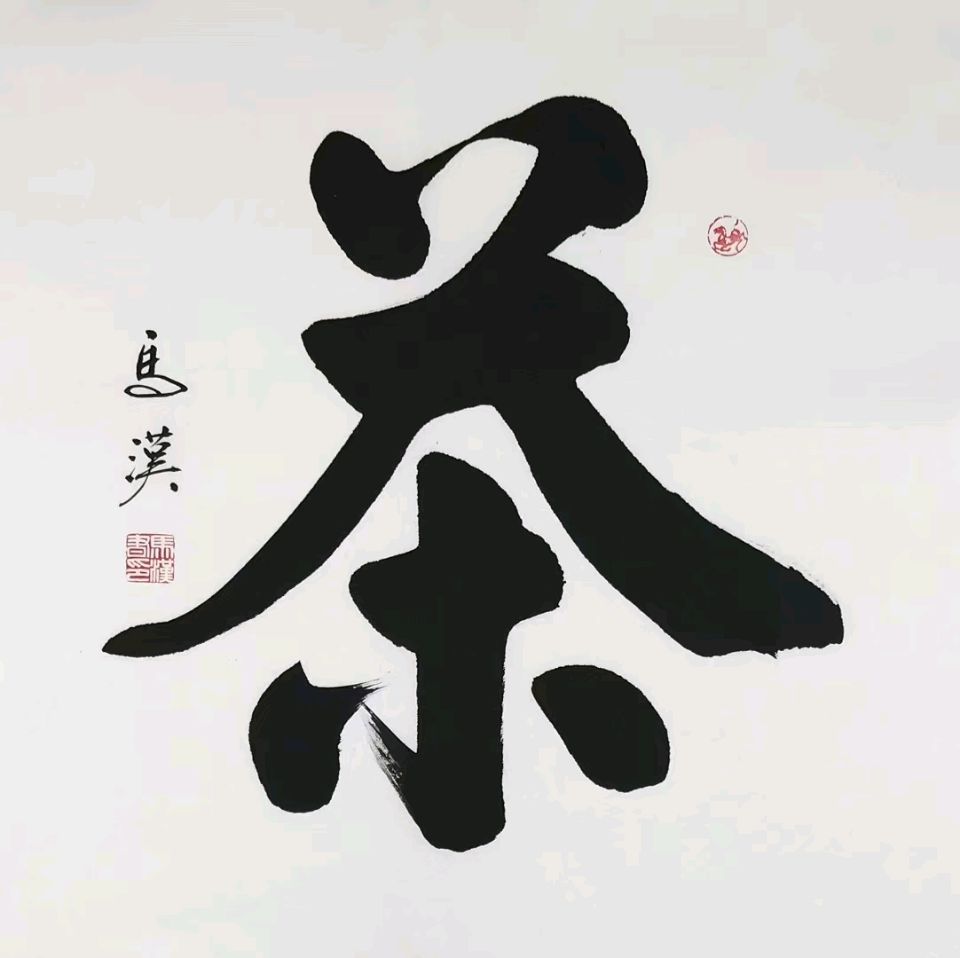 茶
馬漢
馬漢書印